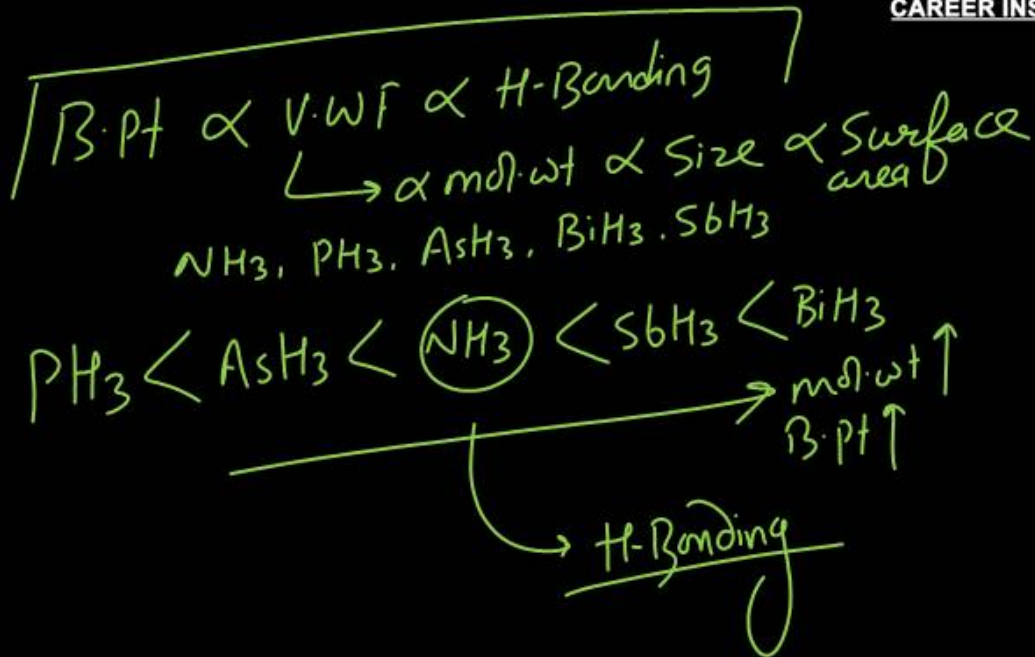 CAREER INS
B.Pt ∝ V.WF ∝ H-Bonding
→ ∝ mol.wt ∝ Size ∝ Surface area
NH3, PH3, AsH3, BiH3. SbH3
PH3 < AsH3 < NH3 < SbH3 < BiH3
mol.wt ↑
B.pt ↑
H-Bonding